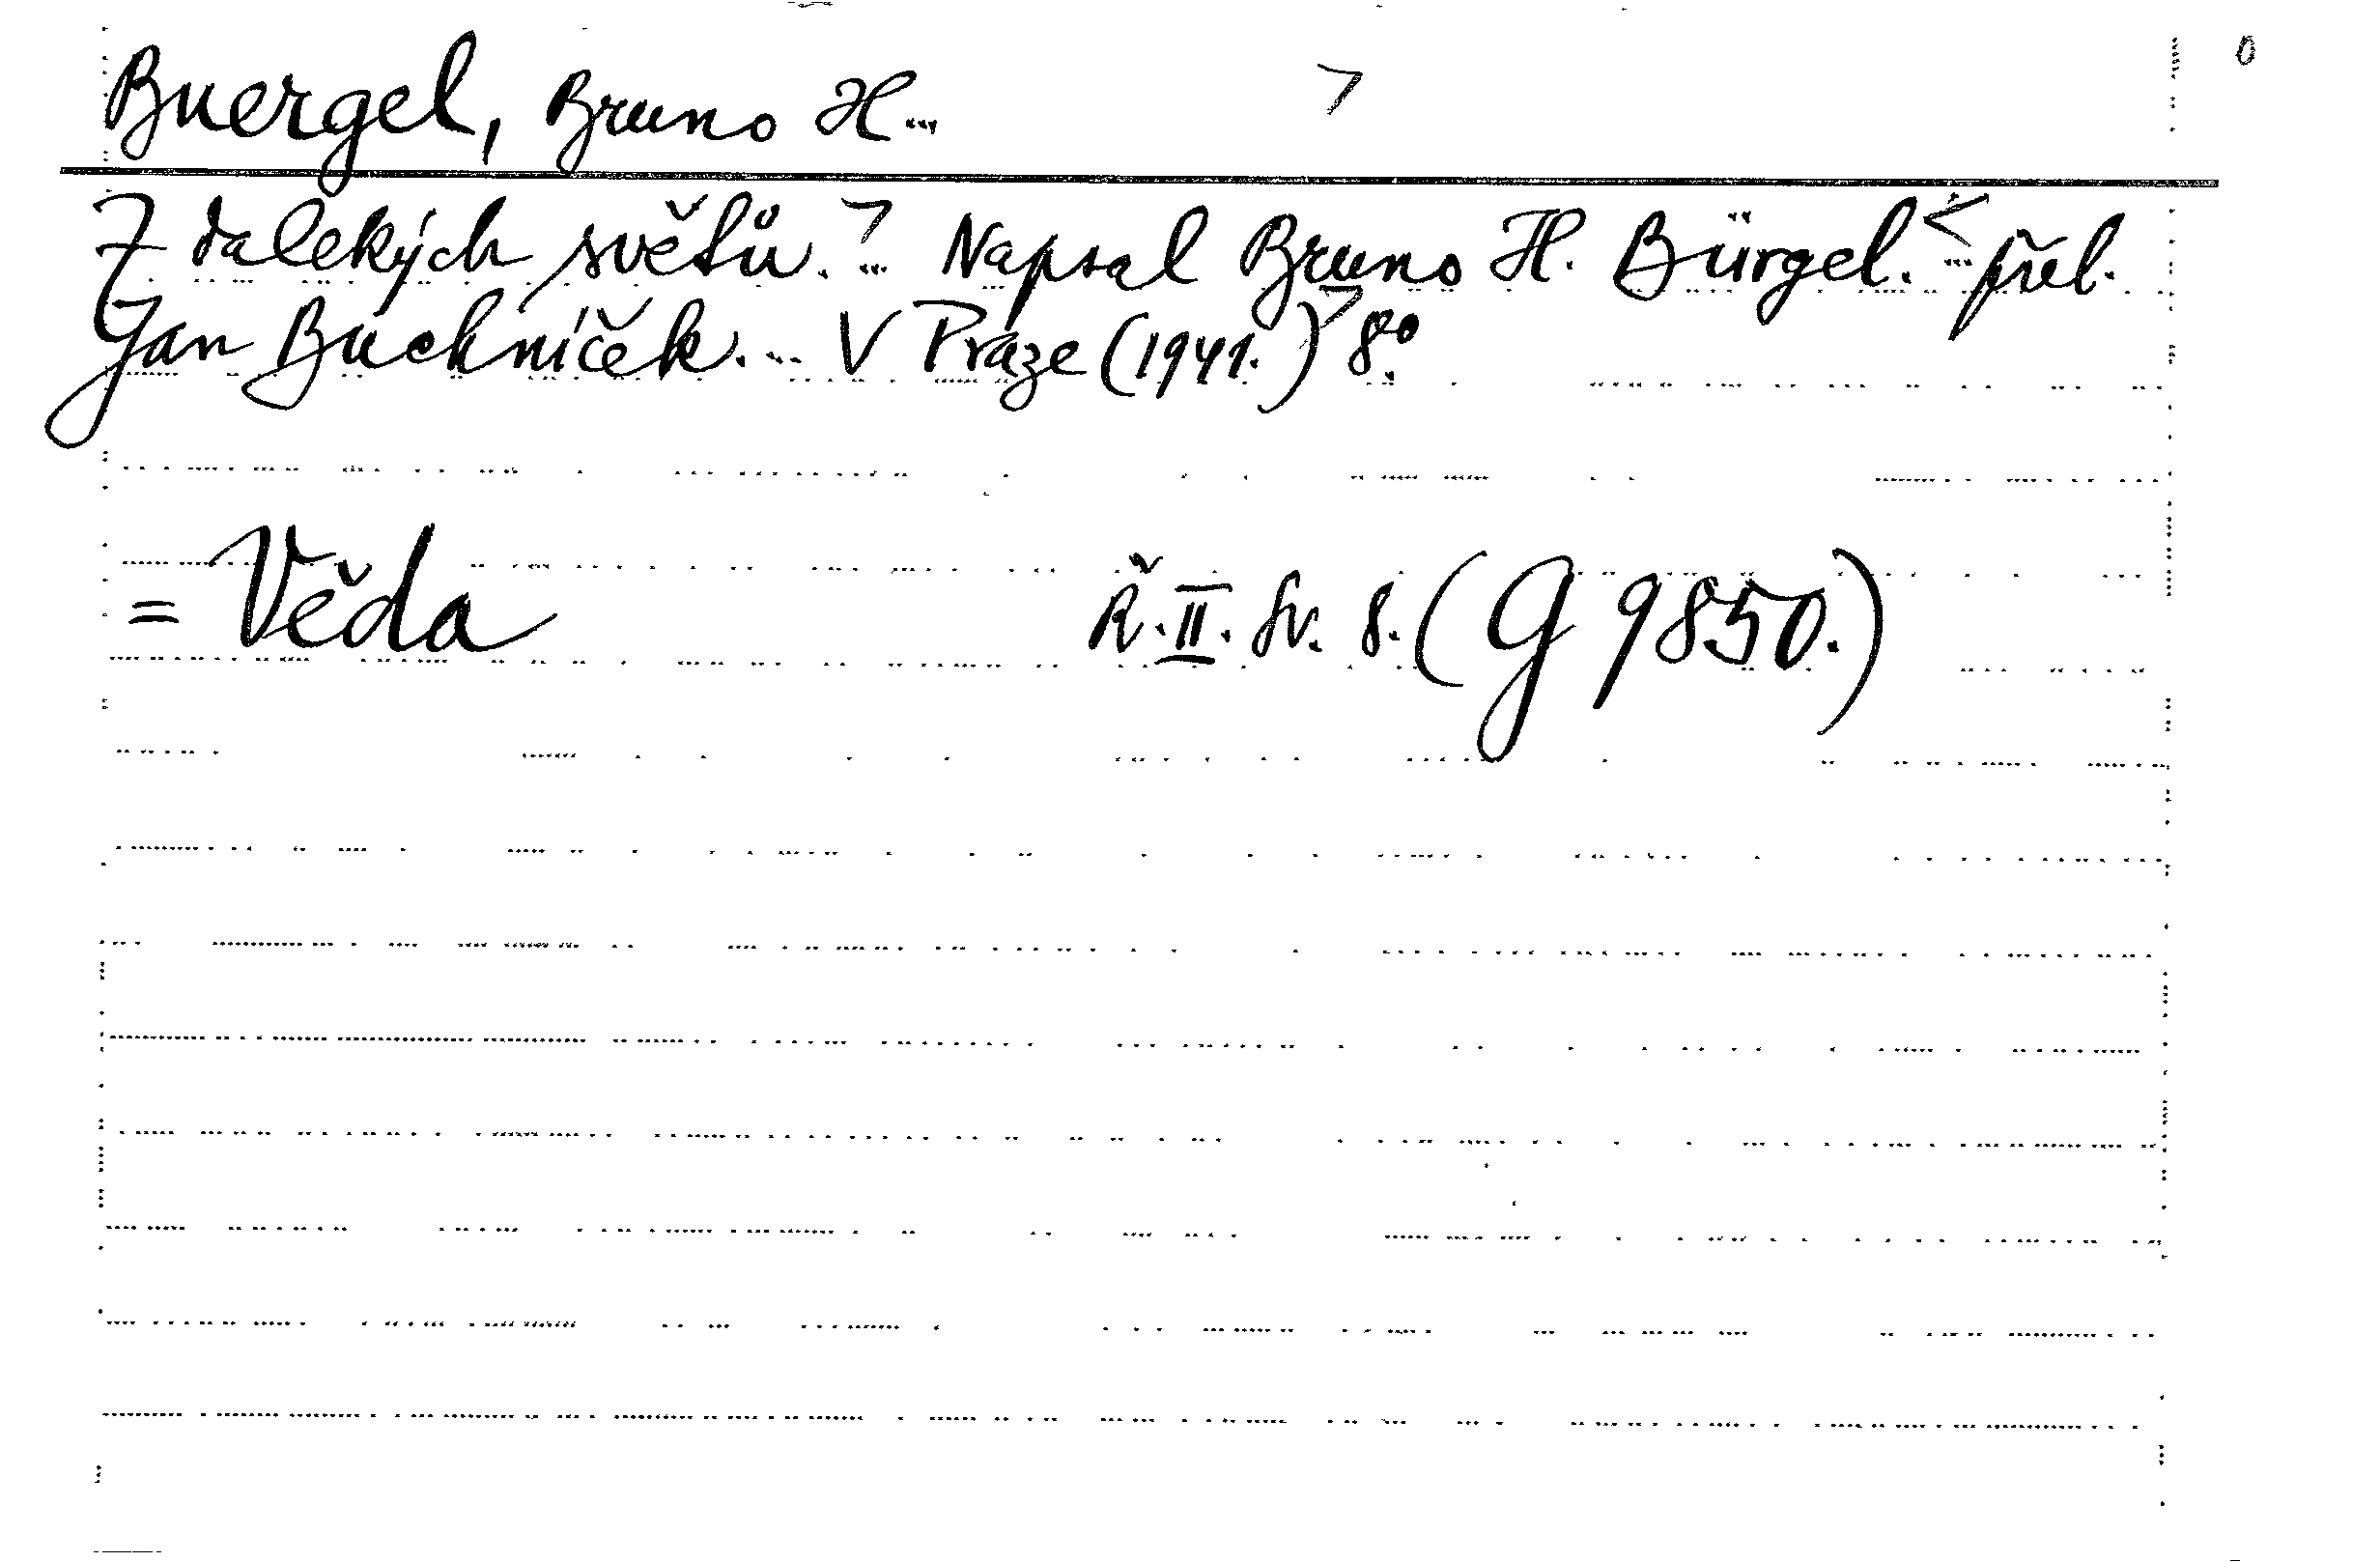 Buergel, Bruno H...
Z dalekých světů. ... Napsal Bruno H. Bürgel. ... přel.
Jan Buchníček. ... V Praze (1941.) 8º.
= Věda Ř. II. sv. 8. (G 9850.)